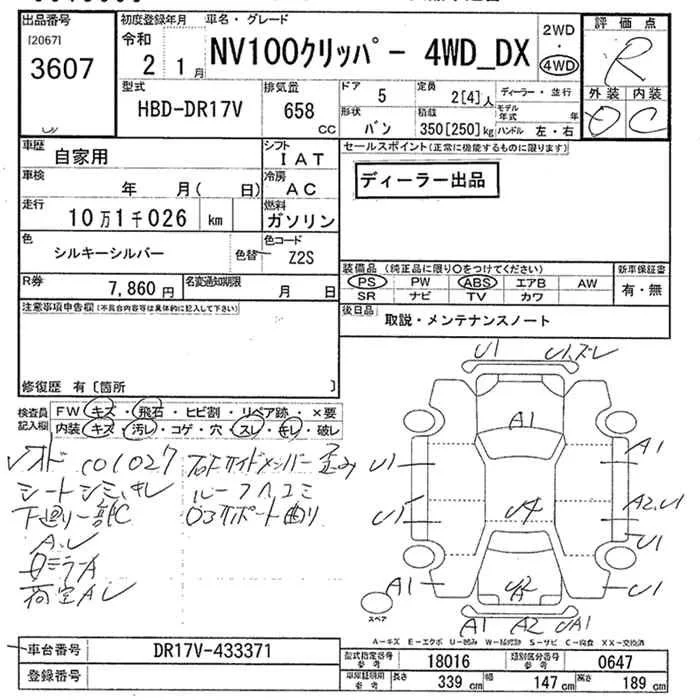 出品番号
[2067]
3607
初度登録年月
令和
2 1月
車名・グレード
NV100クリッパー 4WD_DX
2WD
4WD
評価点
R
外装 内装
C
型式
HBD-DR17V
排気量
658 CC
ドア
5
定員
2[4]人
ディーラー・並行
形状
バン
積載
350[250]kg
モデル年式 年
ハンドル 左・右
車歴
自家用
シフト
IAT
車検
年 月( 日)
冷房
AC
走行
10万1千026 km
燃料
ガソリン
色
シルキーシルバー
色替
色コード
Z2S
R券
7,860円
名変通知期限
月 日
セールスポイント(正常に機能するものに限ります)
ディーラー出品
装備品 (純正品に限り○をつけてください)
PS PW ABS エアB AW
SR ナビ TV カワ
新車保証書
有・無
後日品
取説・メンテナンスノート
注意事項申告欄(不具合内容等は具体的に記入して下さい)
修復歴 有〔箇所 〕
検査員記入欄
FW キズ・飛石・ヒビ割・リペア跡・×要
内装 キズ・汚レ・コゲ・穴・スレ・キレ・破レ
シートシミ、キレ
下廻り一部C
ルーフ凹ミ
U1
A1
U1
A1
U1
A2.U1
U1
A1
U1
A1 A2 UA1
スペア
A-キズ E-エクボ U-凹み W-補修跡 S-サビ C-腐食 XX-交換済
車台番号
DR17V-433371
登録番号
型式指定番号 参考
18016
類別区分番号 参考
0647
車庫証明用 参考
長さ 339 cm
幅 147 cm
高さ 189 cm